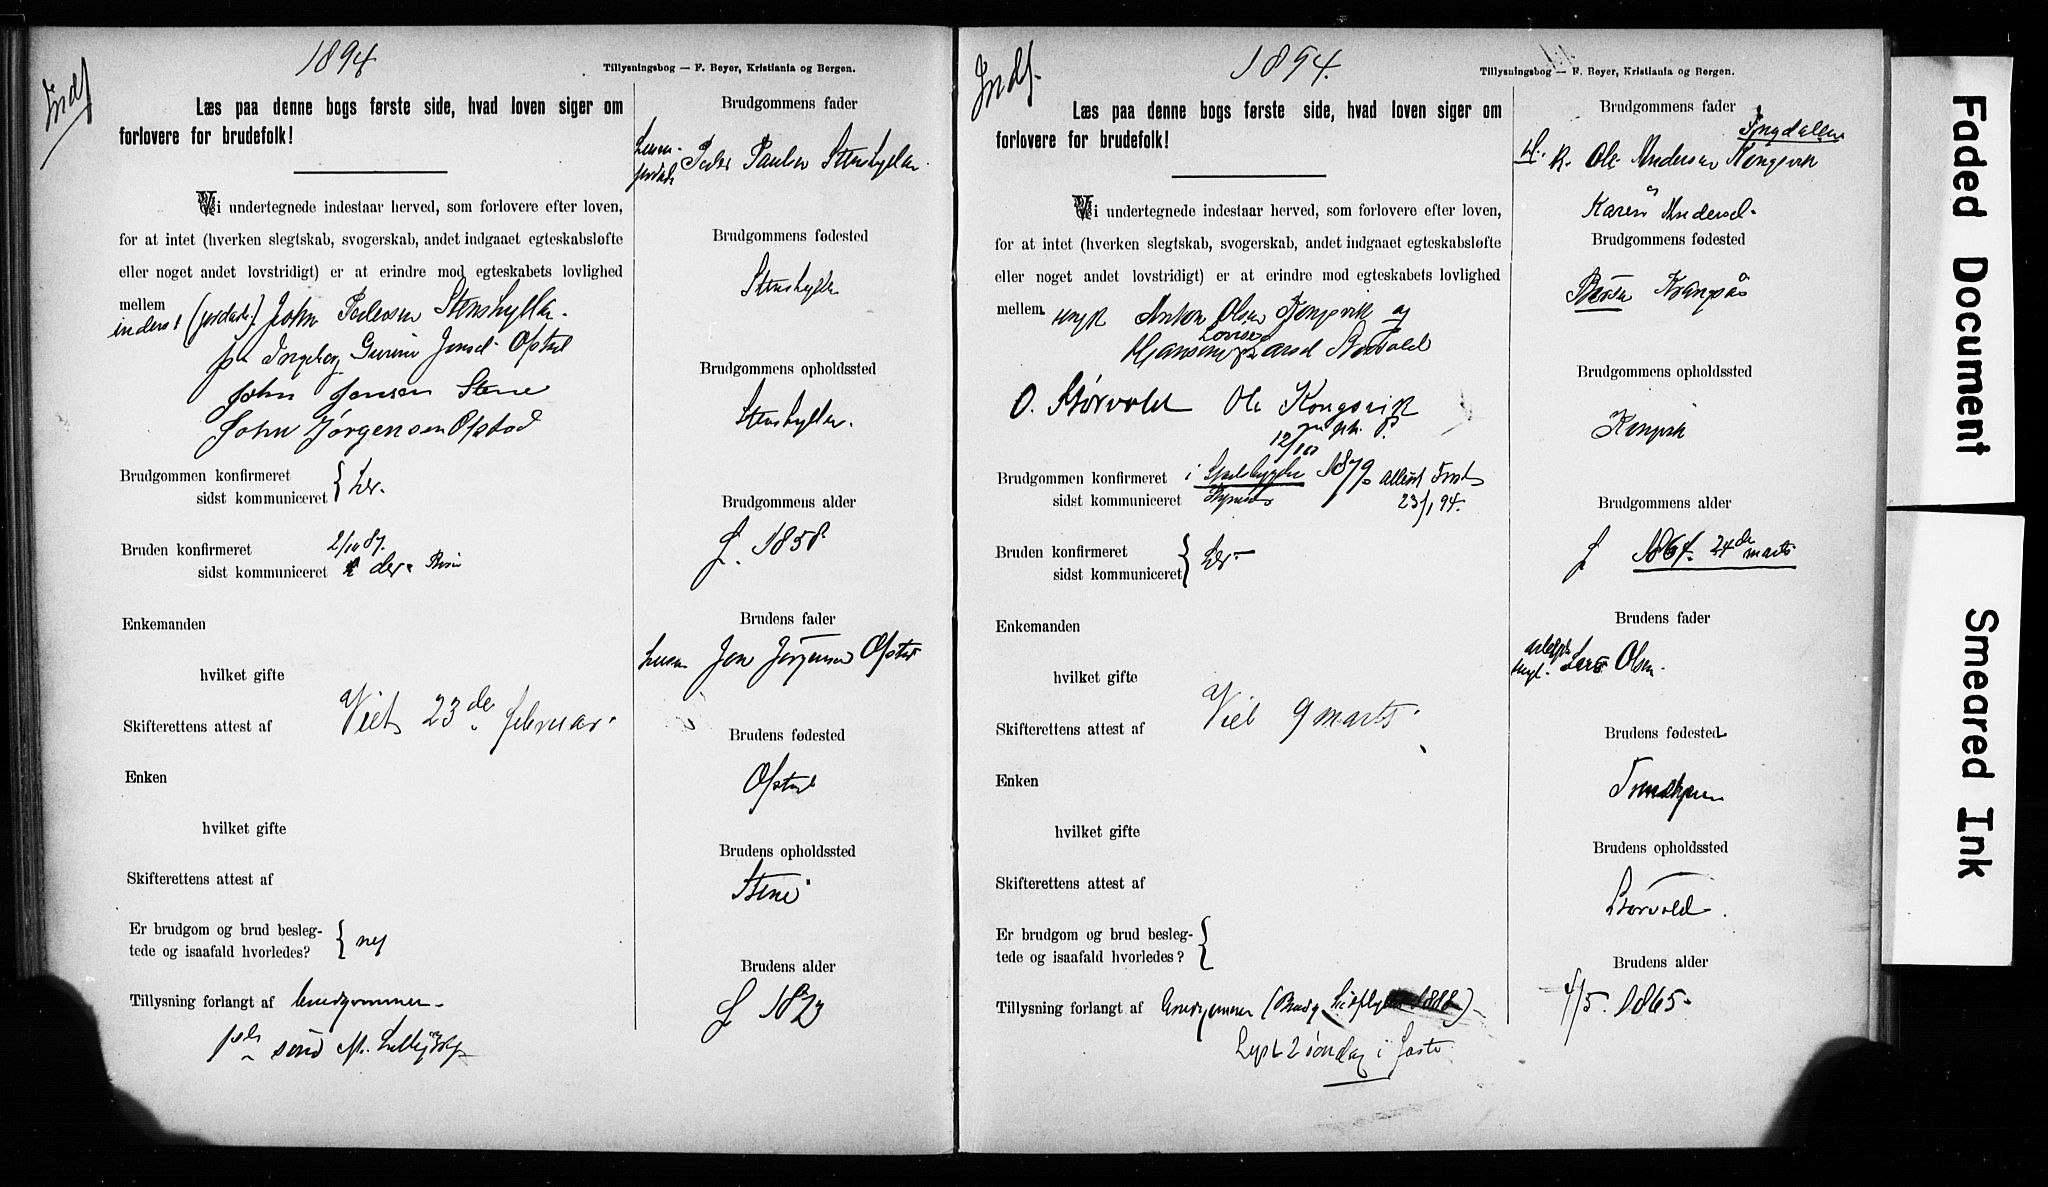 1894
Indf
Tillysningsbog — F. Beyer, Kristiania og Bergen.
Læs paa denne bogs første side, hvad loven siger om
forlovere for brudefolk!
Vi undertegnede indestaar herved, som forlovere efter loven,
for at intet (hverken slegtskab, svogerskab, andet indgaaet egteskabsløfte
eller noget andet lovstridigt) er at erindre mod egteskabets lovlighed
mellem
inderst (jordarb.) John Pedersen Stenshyllen
Ingeborg Gurine Jonsd. Opstad
John Jonsen Stene
John Jørgensen Opstad
Brudgommen konfirmeret
sidst kommuniceret } her.
Bruden konfirmeret 2/10 87.
sidst kommuniceret der
Enkemanden
hvilket gifte
Skifterettens attest af
Viet 23de februar
Enken
hvilket gifte
Skifterettens attest af
Er brudgom og brud besleg-
tede og isaafald hvorledes? } nej
Tillysning forlangt af brudgommen
Brudgommens fader
Peder Paulsen Stenshyllen
Brudgommens fødested
Stenshyllen
Brudgommens opholdssted
Stenshyllen.
Brudgommens alder
f. 1858
Brudens fader
Jon Jørgensen Opstad
Brudens fødested
Opstad
Brudens opholdssted
Stene
Brudens alder
f 1873
Indf.
1894.
Tillysningsbog — F. Beyer, Kristiania og Bergen.
Læs paa denne bogs første side, hvad loven siger om
forlovere for brudefolk!
Vi undertegnede indestaar herved, som forlovere efter loven,
for at intet (hverken slegtskab, svogerskab, andet indgaaet egteskabsløfte
eller noget andet lovstridigt) er at erindre mod egteskabets lovlighed
mellem ungk Anton Olsen Kongsvik og
Lovise
Larsd Størvold
O. Størvold Ole Kongsvik
12/10
Brudgommen konfirmeret i 1879 attest
sidst kommuniceret 23/1 94.
Bruden konfirmeret
sidst kommuniceret } her
Enkemanden
hvilket gifte
Skifterettens attest af
Viet 9 marts
Enken
hvilket gifte
Skifterettens attest af
Er brudgom og brud besleg-
tede og isaafald hvorledes? }
Tillysning forlangt af brudgommen
Lyst 2 søndag i faste
Brudgommens fader
Ingdalen
Ole Andersen Kongsvik
Karen Andersd.
Brudgommens fødested
Brudgommens opholdssted
Kongsvik
Brudgommens alder
f 1864. 24de marts
Brudens fader
Lars Olsen.
Brudens fødested
Trondhjem
Brudens opholdssted
Størvold.
Brudens alder
4/5. 1865.
Faded Document
Smeared Ink